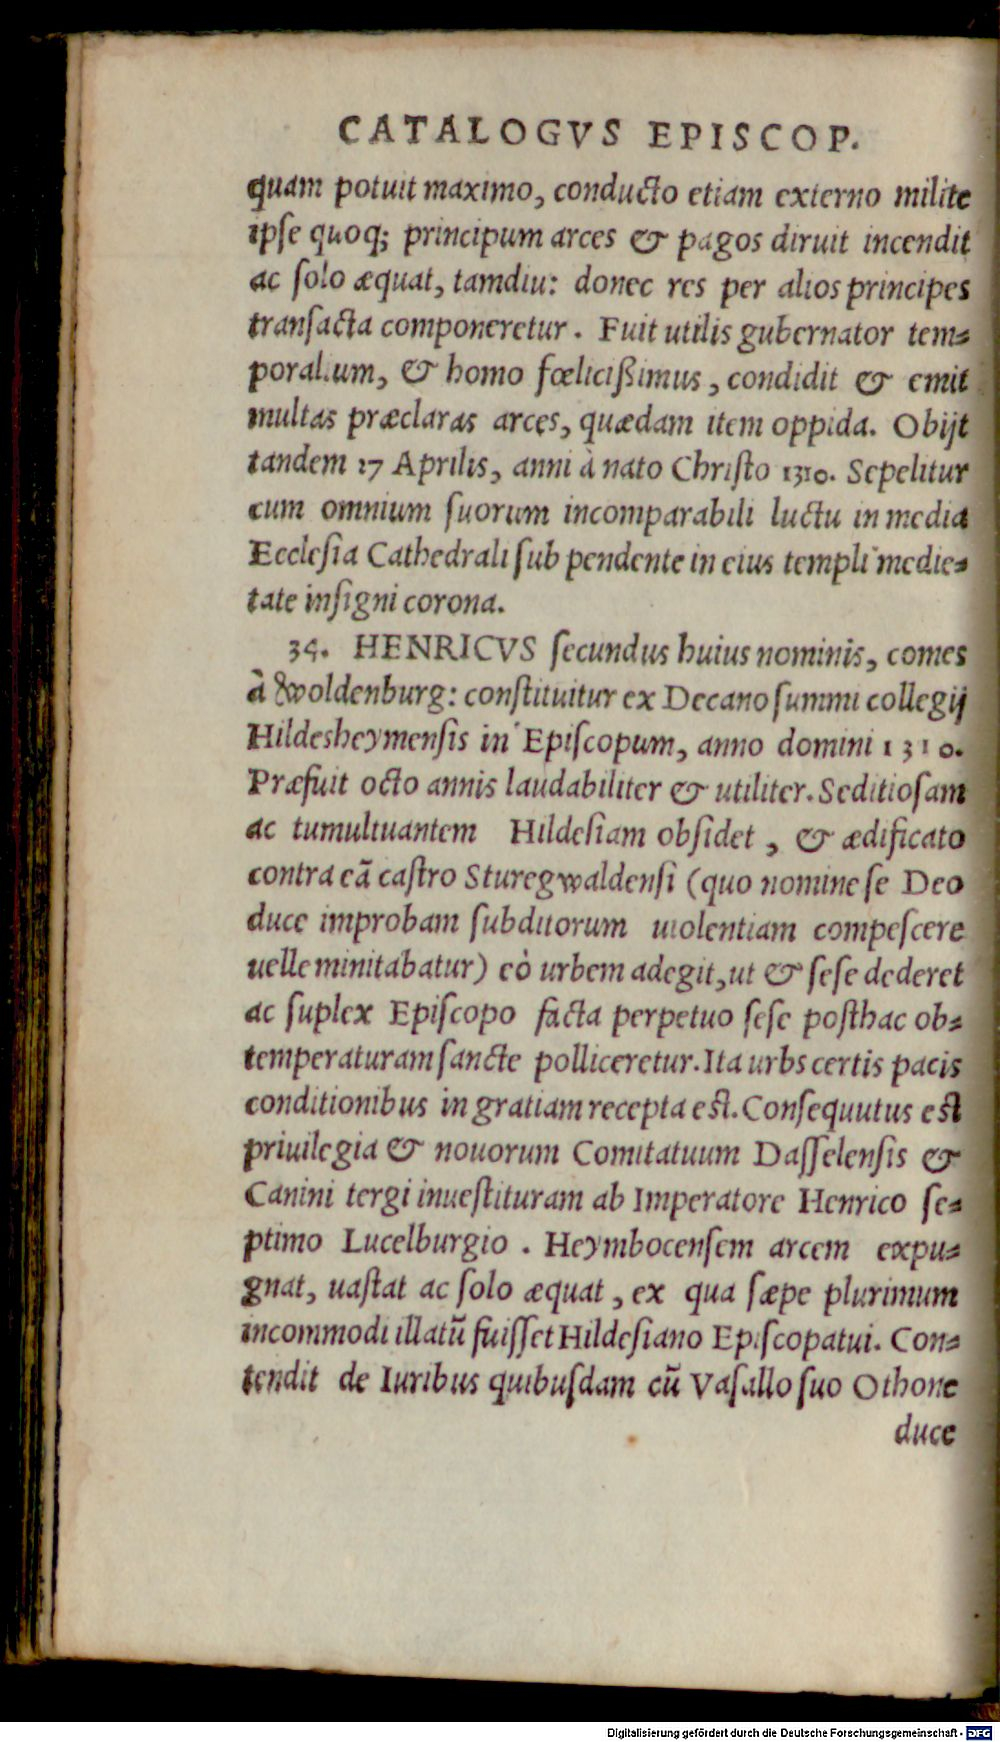 CATALOGVS EPISCOP.
quam potuit maximo, conducto etiam externo milite
ipſe quoq; principum arces & pagos diruit incendit
ac ſolo æquat, tamdiu: donec res per alios principes
tranſacta componeretur. Fuit utilis gubernator tem-
poralium, & homo fœlicißimus, condidit & emit
multas præclaras arces, quædam item oppida. Obijt
tandem 27 Aprilis, anni à nato Chriſto 1310. Sepelitur
cum omnium ſuorum incomparabili luctu in media
Eccleſia Cathedrali ſub pendente in eius templi medie-
tate inſigni corona.
34. HENRICVS ſecundus huius nominis, comes
à Woldenburg: conſtituitur ex Decano ſummi collegij
Hildesheymenſis in Epiſcopum, anno domini 1310.
Præfuit octo annis laudabiliter & utiliter. Seditioſam
ac tumultuantem Hildeſiam obſidet, & ædificato
contra eã caſtro Sturegwaldenſi (quo nomine ſe Deo
duce improbam ſubditorum uiolentiam compeſcere
uelle minitabatur) eò urbem adegit, ut & ſeſe dederet
ac ſuplex Epiſcopo facta perpetuo ſeſe poſthac ob-
temperaturam ſancte polliceretur. Ita urbs certis pacis
conditionibus in gratiam recepta eſt. Conſequutus eſt
priuilegia & nouorum Comitatuum Daſſelenſis &
Canini tergi inueſtituram ab Imperatore Henrico ſe-
ptimo Lucelburgio. Heymbocenſem arcem expu-
gnat, uaſtat ac ſolo æquat, ex qua ſæpe plurimum
incommodi illatũ fuiſſet Hildeſiano Epiſcopatui. Con-
tendit de Iuribus quibuſdam cũ Vaſallo ſuo Othone
duce
Digitalisierung gefördert durch die Deutsche Forschungsgemeinschaft - DFG